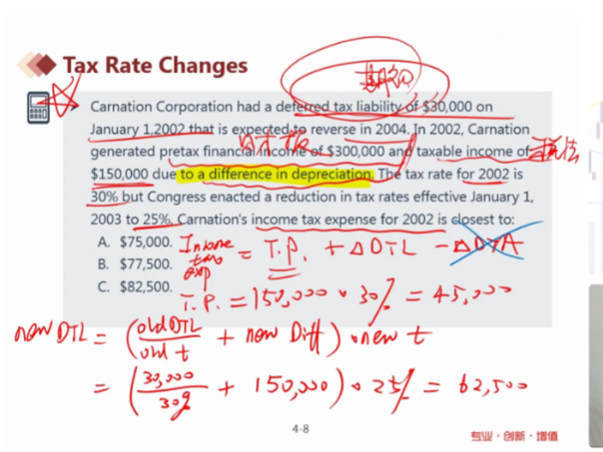 Tax Rate Changes
Carnation Corporation had a deferred tax liability of $30,000 on
January 1,2002 that is expected to reverse in 2004. In 2002, Carnation
generated pretax financial income of $300,000 and taxable income of
$150,000 due to a difference in depreciation. The tax rate for 2002 is
30% but Congress enacted a reduction in tax rates effective January 1,
2003 to 25%. Carnation's income tax expense for 2002 is closest to:
A. $75,000.
B. $77,500.
C. $82,500.
Income tax exp = T.P. + ΔDTL - ΔDTA
T.P. = 150,000 · 30% = 45,000
new DTL = (old DTL / old t + new Diff) · new t
= (30,000 / 30% + 150,000) · 25% = 62,500
4-8
专业·创新·增值